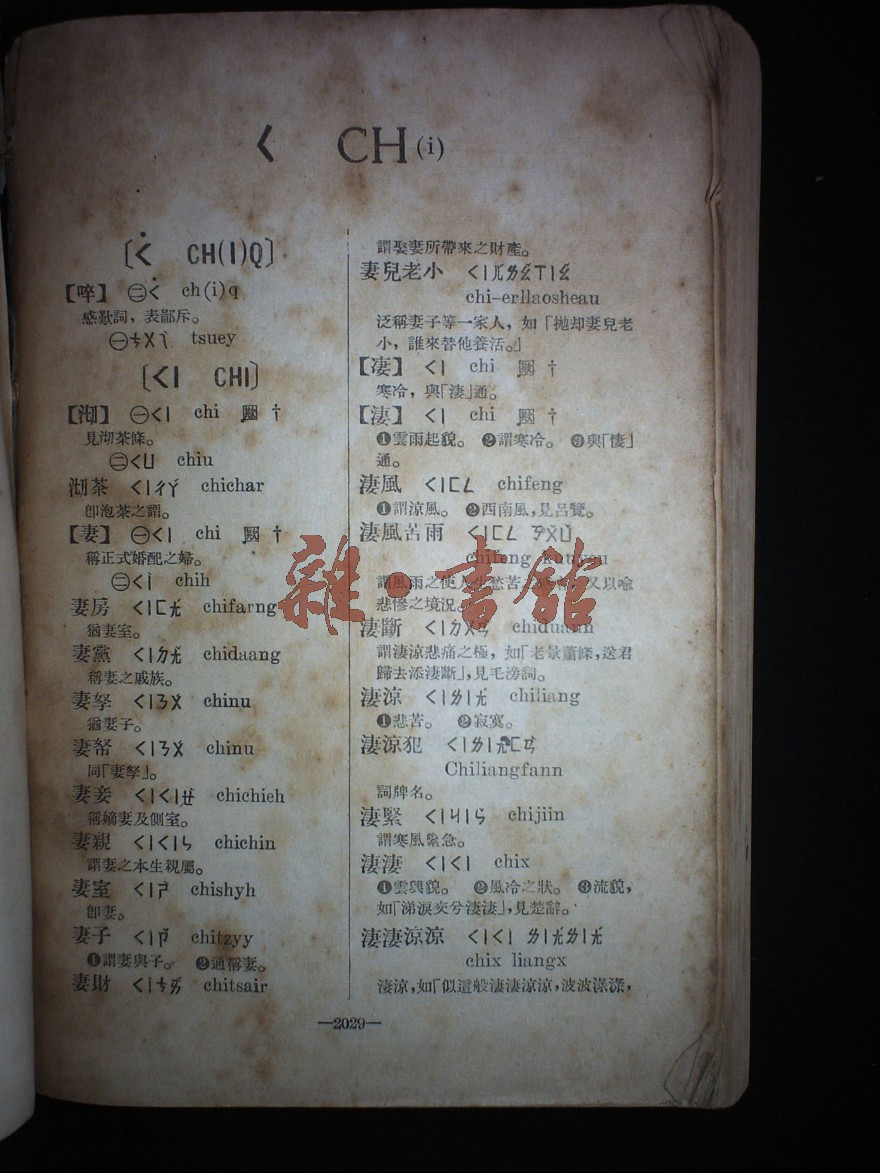 ㄑ CH(i)
〔ㄑ˙ CH(I)Q〕
【啐】 ㊁ㄑ˙ ch(i)q
感歎詞，表鄙斥。
㊀ㄘㄨㄟˋ tsuey
〔ㄑㄧ CHI〕
【沏】 ㊀ㄑㄧ chi 國 †
見沏茶條。
㊁ㄑㄩ chiu
沏茶 ㄑㄧㄔㄚˊ chichar
卽泡茶之謂。
【妻】 ㊀ㄑㄧ chi 國 †
稱正式婚配之婦。
㊁ㄑㄧˋ chih
妻房 ㄑㄧㄈㄤˊ chifarng
猶妻室。
妻黨 ㄑㄧㄉㄤˇ chidaang
稱妻之戚族。
妻孥 ㄑㄧㄋㄨˊ chinu
猶妻子。
妻帑 ㄑㄧㄋㄨˊ chinu
同「妻孥」。
妻妾 ㄑㄧㄑㄧㄝˋ chichieh
稱嫡妻及側室。
妻親 ㄑㄧㄑㄧㄣ chichin
謂妻之本生親屬。
妻室 ㄑㄧㄕˋ chishyh
卽妻。
妻子 ㄑㄧㄗˇ chitzyy
❶謂妻與子。 ❷通稱妻。
妻財 ㄑㄧㄘㄞˊ chitsair
謂娶妻所帶來之財產。
妻兒老小 ㄑㄧㄦˊㄌㄠˇㄒㄧㄠˇ
chi-erllaosheau
泛稱妻子等一家人，如「拋却妻兒老
小，誰來替他養活。」
【凄】 ㄑㄧ chi 國 †
寒冷，與「淒」通。
【淒】 ㄑㄧ chi 國 †
❶雲雨起貌。 ❷謂寒冷。 ❸與「悽」
通。
淒風 ㄑㄧㄈㄥ chifeng
❶謂涼風。 ❷西南風，見呂覽。
淒風苦雨 ㄑㄧㄈㄥ ㄎㄨˇㄩˇ
chifeng
謂風雨之使人生愁苦之 又以喻
悲慘之境況。
淒斷 ㄑㄧㄉㄨㄢˋ chiduann
謂淒涼悲痛之極，如「老景蕭條，送君
歸去添淒斷」，見毛滂詞。
淒涼 ㄑㄧㄌㄧㄤˊ chiliang
❶悲苦。 ❷寂寞。
淒涼犯 ㄑㄧㄌㄧㄤˊㄈㄢˋ
Chiliangfann
詞牌名。
淒緊 ㄑㄧㄐㄧㄣˇ chijiin
謂寒風緊急。
淒淒 ㄑㄧㄑㄧ chix
❶雲興貌。 ❷風冷之狀。 ❸流貌，
如「涕淚交兮淒淒」，見楚辭。
淒淒涼涼 ㄑㄧㄑㄧ ㄌㄧㄤˊㄌㄧㄤˊ
chix liangx
淒涼，如「似這般淒淒涼涼，波波淥淥，
—2029—
雜·書館